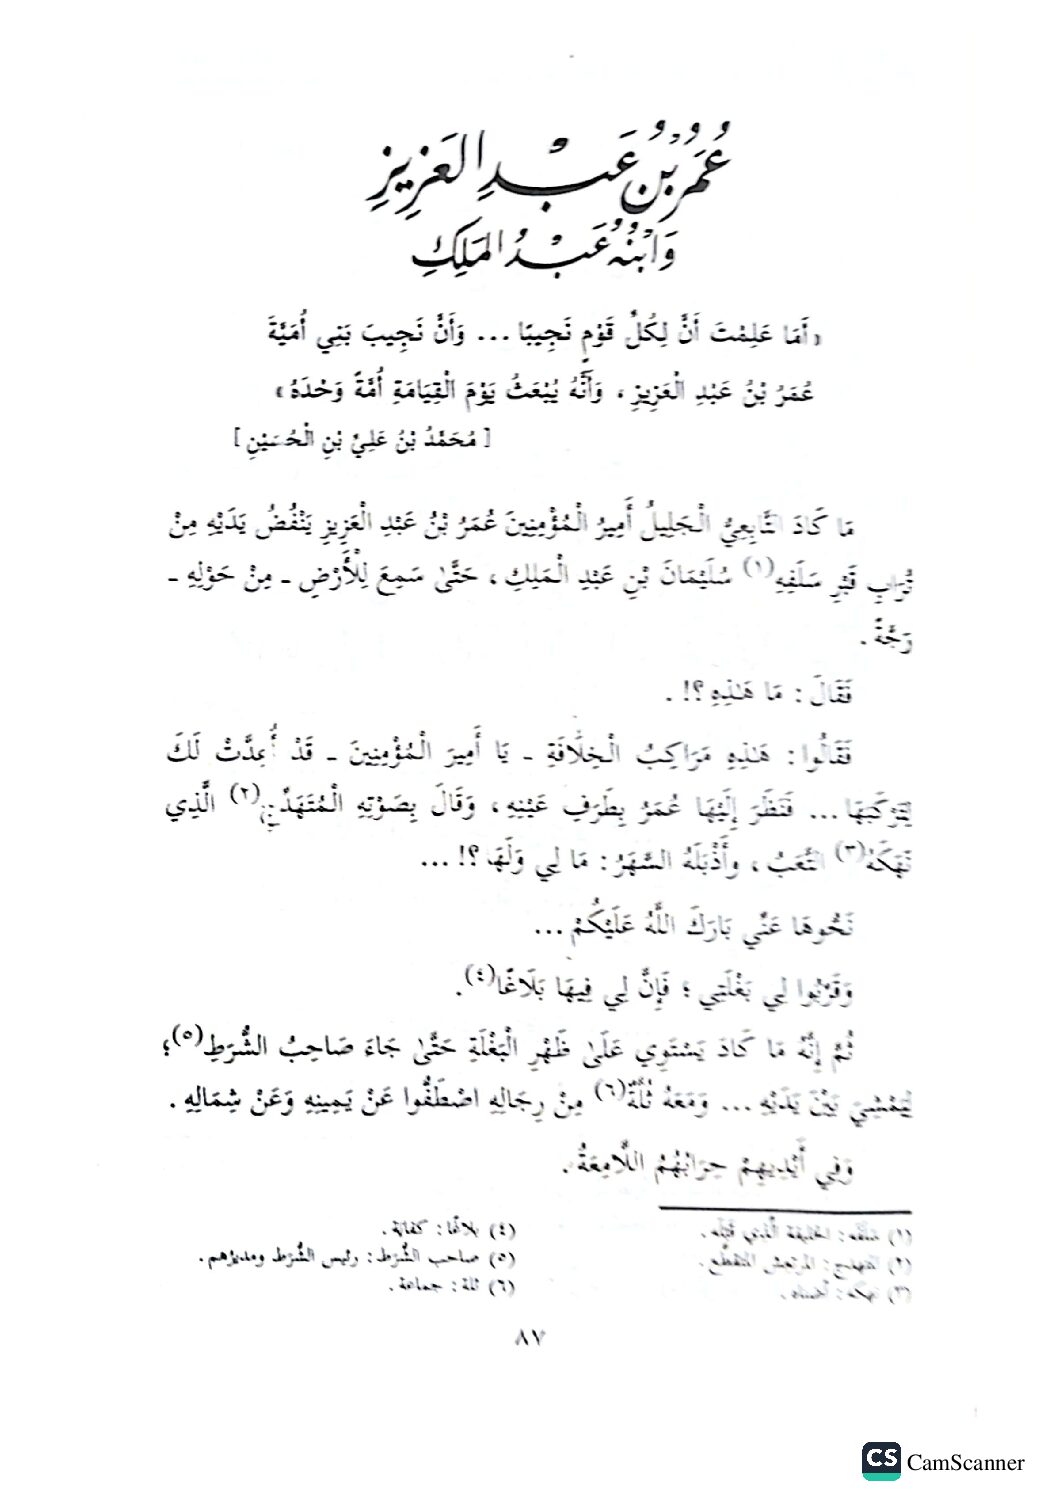 عُمَرُ بْنُ عَبْدِ العَزِيزِ
وَابْنُهُ عَبْدُ المَلِكِ
« أَمَا عَلِمْتَ أَنَّ لِكُلِّ قَوْمٍ نَجِيبًا ... وَأَنَّ نَجِيبَ بَنِي أُمَيَّةَ
عُمَرُ بْنُ عَبْدِ الْعَزِيزِ ، وَأَنَّهُ يُبْعَثُ يَوْمَ الْقِيَامَةِ أُمَّةً وَحْدَهُ »
[ مُحَمَّدُ بْنُ عَلِيِّ بْنِ الْحُسَيْنِ ]
مَا كَادَ التَّابِعِيُّ الْجَلِيلُ أَمِيرُ الْمُؤْمِنِينَ عُمَرُ بْنُ عَبْدِ الْعَزِيزِ يَنْفُضُ يَدَيْهِ مِنْ
تُرَابِ قَبْرِ سَلَفِهِ(١) سُلَيْمَانَ بْنِ عَبْدِ الْمَلِكِ ، حَتَّىٰ سَمِعَ لِلْأَرْضِ ـ مِنْ حَوْلِهِ ـ
رَجَّةً .
فَقَالَ : مَا هَـٰذِهِ ؟! .
فَقَالُوا : هَـٰذِهِ مَرَاكِبُ الْخِلَافَةِ ـ يَا أَمِيرَ الْمُؤْمِنِينَ ـ قَدْ أُعِدَّتْ لَكَ
لِتَرْكَبَهَا ... فَنَظَرَ إِلَيْهَا عُمَرُ بِطَرَفِ عَيْنِهِ ، وَقَالَ بِصَوْتِهِ الْمُتَهَدِّجِ(٢) الَّذِي
نَهَكَهُ(٣) التَّعَبُ ، وَأَذْبَلَهُ السَّهَرُ : مَا لِي وَلَهَا ؟! ...
نَحُّوهَا عَنِّي بَارَكَ اللَّهُ عَلَيْكُمْ ...
وَقَرِّبُوا لِي بَغْلَتِي ؛ فَإِنَّ لِي فِيهَا بَلَاغًا(٤) .
ثُمَّ إِنَّهُ مَا كَادَ يَسْتَوِي عَلَىٰ ظَهْرِ الْبَغْلَةِ حَتَّىٰ جَاءَ صَاحِبُ الشُّرَطِ(٥) ؛
لِيَمْشِيَ بَيْنَ يَدَيْهِ ... وَمَعَهُ ثُلَّةٌ(٦) مِنْ رِجَالِهِ اصْطَفُّوا عَنْ يَمِينِهِ وَعَنْ شِمَالِهِ .
وَفِي أَيْدِيهِمْ حِرَابُهُمُ اللَّامِعَةُ .
(١) سَلَفه : الخليفة الَّذي قبْله .
(٢) المتهدج : المرتعش المتقطّع .
(٣) نهكه : أضناه .
(٤) بلاغًا : كفاية .
(٥) صاحب الشُّرَط : رئيس الشُّرَط ومديرُهم .
(٦) ثلة : جماعة .
٨٧
CS CamScanner